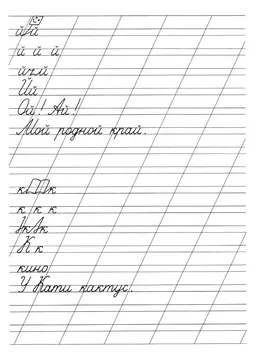 й й
й й й
й й
Й й
Ой! Ай!
Мой родной край.
к к
к к к
к к
К к
кино
У Кати кактус.